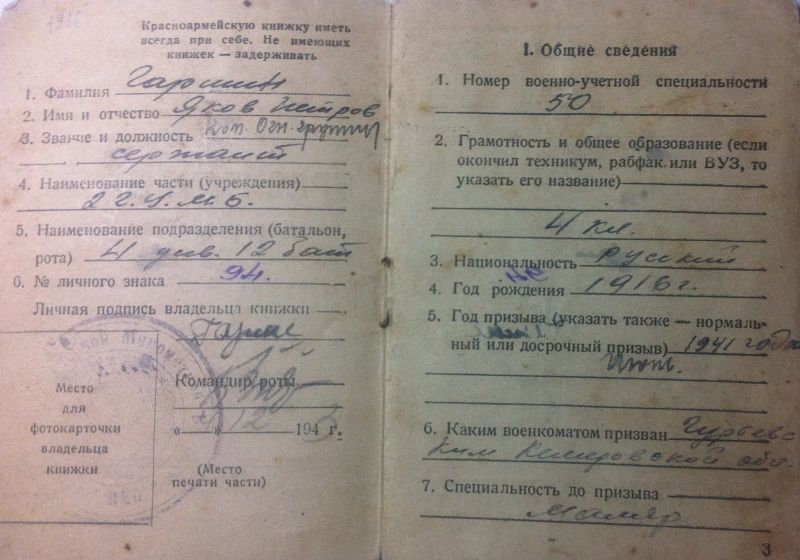 1916
Красноармейскую книжку иметь
всегда при себе. Не имеющих
книжек — задерживать
1. Фамилия Гаршин
2. Имя и отчество Яков Петров
3. Звание и должность Ком. Огн. группы
сержант
4. Наименование части (учреждения)
2 Г.У.М.Б.
5. Наименование подразделения (батальон,
рота) 4 див. 12 бат
6. № личного знака 94.
Личная подпись владельца книжки
Место
для
фотокарточки
владельца
книжки
Командир роты
12
„ “ 194 г.
(Место
печати части)
I. Общие сведения
1. Номер военно-учетной специальности
50
2. Грамотность и общее образование (если
окончил техникум, рабфак или ВУЗ, то
указать его название)
4 кл.
3. Национальность Русский
4. Год рождения 1916 г.
5. Год призыва (указать также — нормаль-
ный или досрочный призыв) 1941 года
6. Каким военкоматом призван Гурьевс
ким Кемеровской обл.
7. Специальность до призыва
Маляр
3